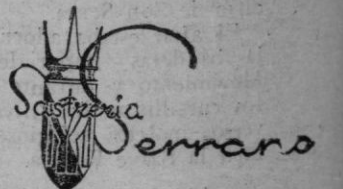 Sastreria
Serrano